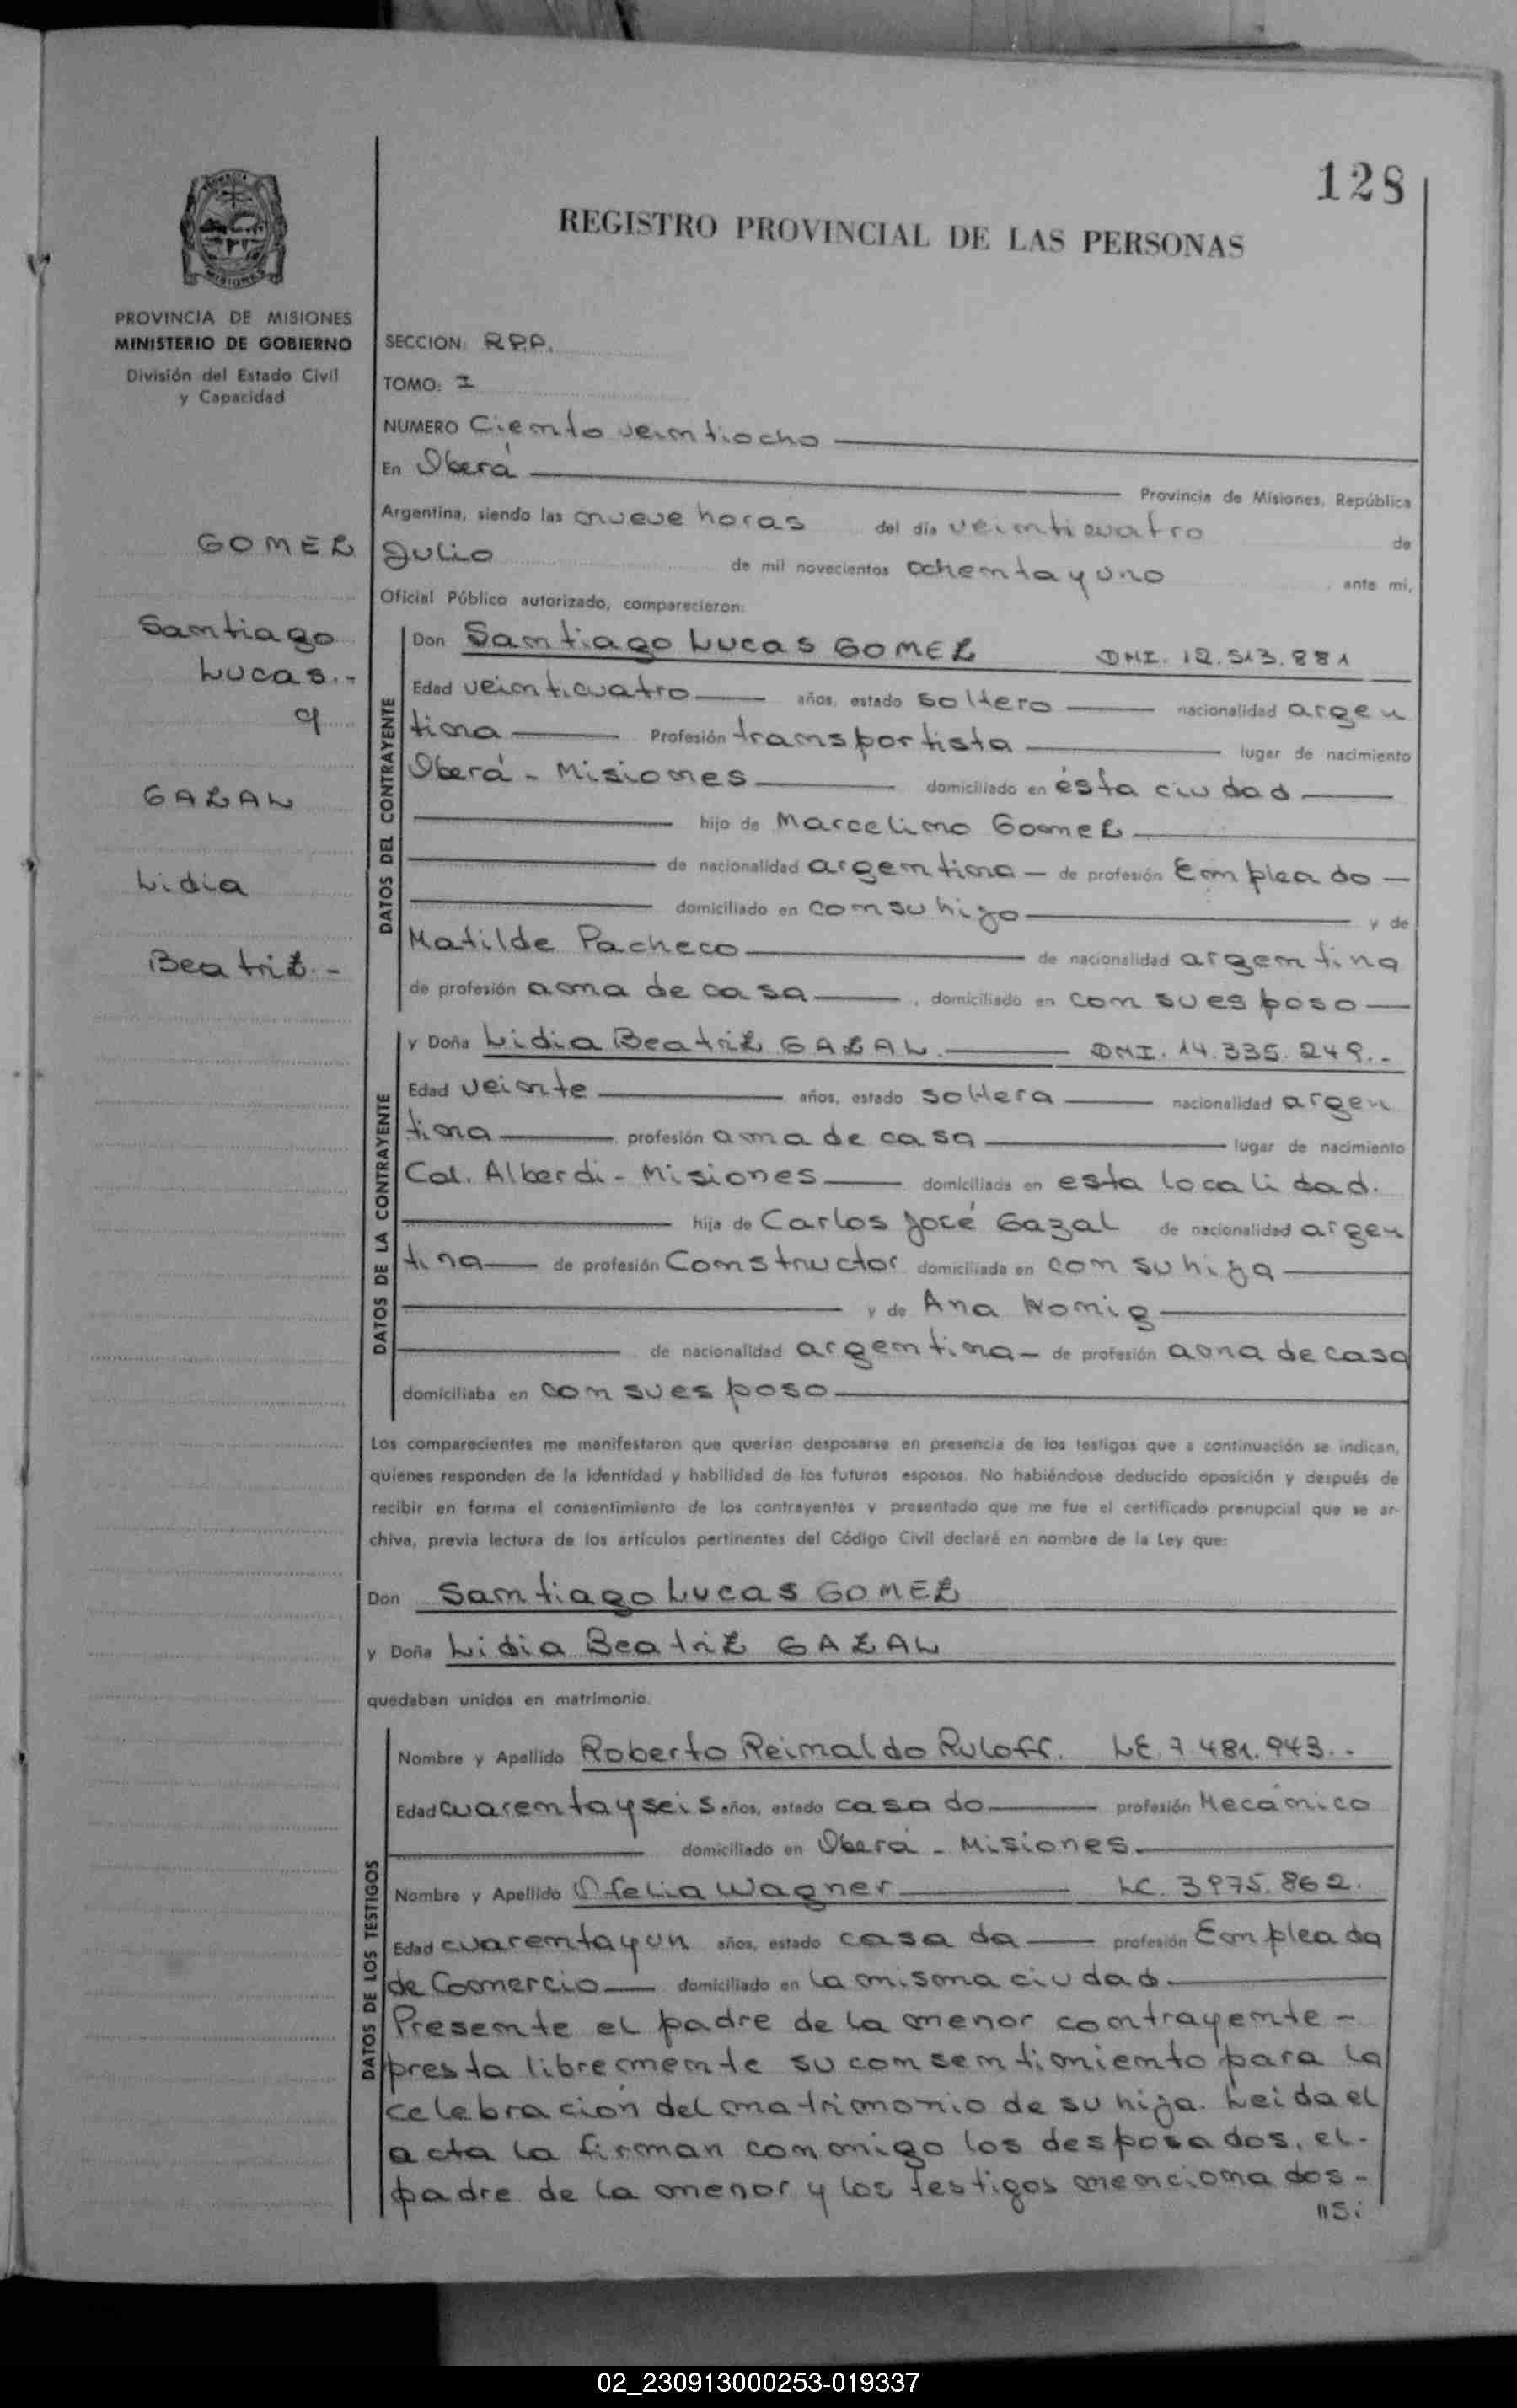 128
REGISTRO PROVINCIAL DE LAS PERSONAS
MISIONES
PROVINCIA DE MISIONES
MINISTERIO DE GOBIERNO
División del Estado Civil
y Capacidad
GOMEZ
Santiago
Lucas.-
y
GAZAL
Lidia
Beatriz.-
SECCION: R.P.P.
TOMO: I
NUMERO Ciento veintiocho
En Oberá Provincia de Misiones, República
Argentina, siendo las nueve horas del día veinticuatro de
Julio de mil novecientos ochenta y uno ante mi,
Oficial Público autorizado, comparecieron:
DATOS DEL CONTRAYENTE
Don Santiago Lucas GOMEZ DNI. 12.513.881
Edad veinticuatro años, estado soltero nacionalidad argen
tina Profesión transportista lugar de nacimiento
Oberá - Misiones domiciliado en ésta ciudad
hijo de Marcelino Gomez
de nacionalidad argentina - de profesión Empleado -
domiciliado en con su hijo y de
Matilde Pacheco de nacionalidad argentina
de profesión ama de casa , domiciliado en con su esposo
DATOS DE LA CONTRAYENTE
y Doña Lidia Beatriz GAZAL. DNI. 14.335.249.-
Edad veinte años, estado soltera nacionalidad argen
tina profesión ama de casa lugar de nacimiento
Col. Alberdi - Misiones domiciliada en esta localidad.
hija de Carlos José Gazal de nacionalidad argen
tina de profesión Constructor domiciliada en con su hija
y de Ana Honig
de nacionalidad argentina - de profesión ama de casa
domiciliaba en con su esposo
Los comparecientes me manifestaron que querían desposarse en presencia de los testigos que a continuación se indican,
quienes responden de la identidad y habilidad de los futuros esposos. No habiéndose deducido oposición y después de
recibir en forma el consentimiento de los contrayentes y presentado que me fue el certificado prenupcial que se ar-
chiva, previa lectura de los artículos pertinentes del Código Civil declaré en nombre de la Ley que:
Don Santiago Lucas GOMEZ
y Doña Lidia Beatriz GAZAL
quedaban unidos en matrimonio.
DATOS DE LOS TESTIGOS
Nombre y Apellido Roberto Reinaldo Ruloff. LE. 7.481.943.-
Edad cuarenta y seis años, estado casado profesión Mecánico
domiciliado en Oberá - Misiones.
Nombre y Apellido Ofelia Wagner LC. 3975.862.
Edad cuarenta y un años, estado casada profesión Empleada
de Comercio domiciliado en la misma ciudad.
Presente el padre de la menor contrayente -
presta libremente su consentimiento para la
celebración del matrimonio de su hija. Leida el
acta la firman conmigo los desposados, el-
padre de la menor y los testigos mencionados -
"Si
02_230913000253-019337